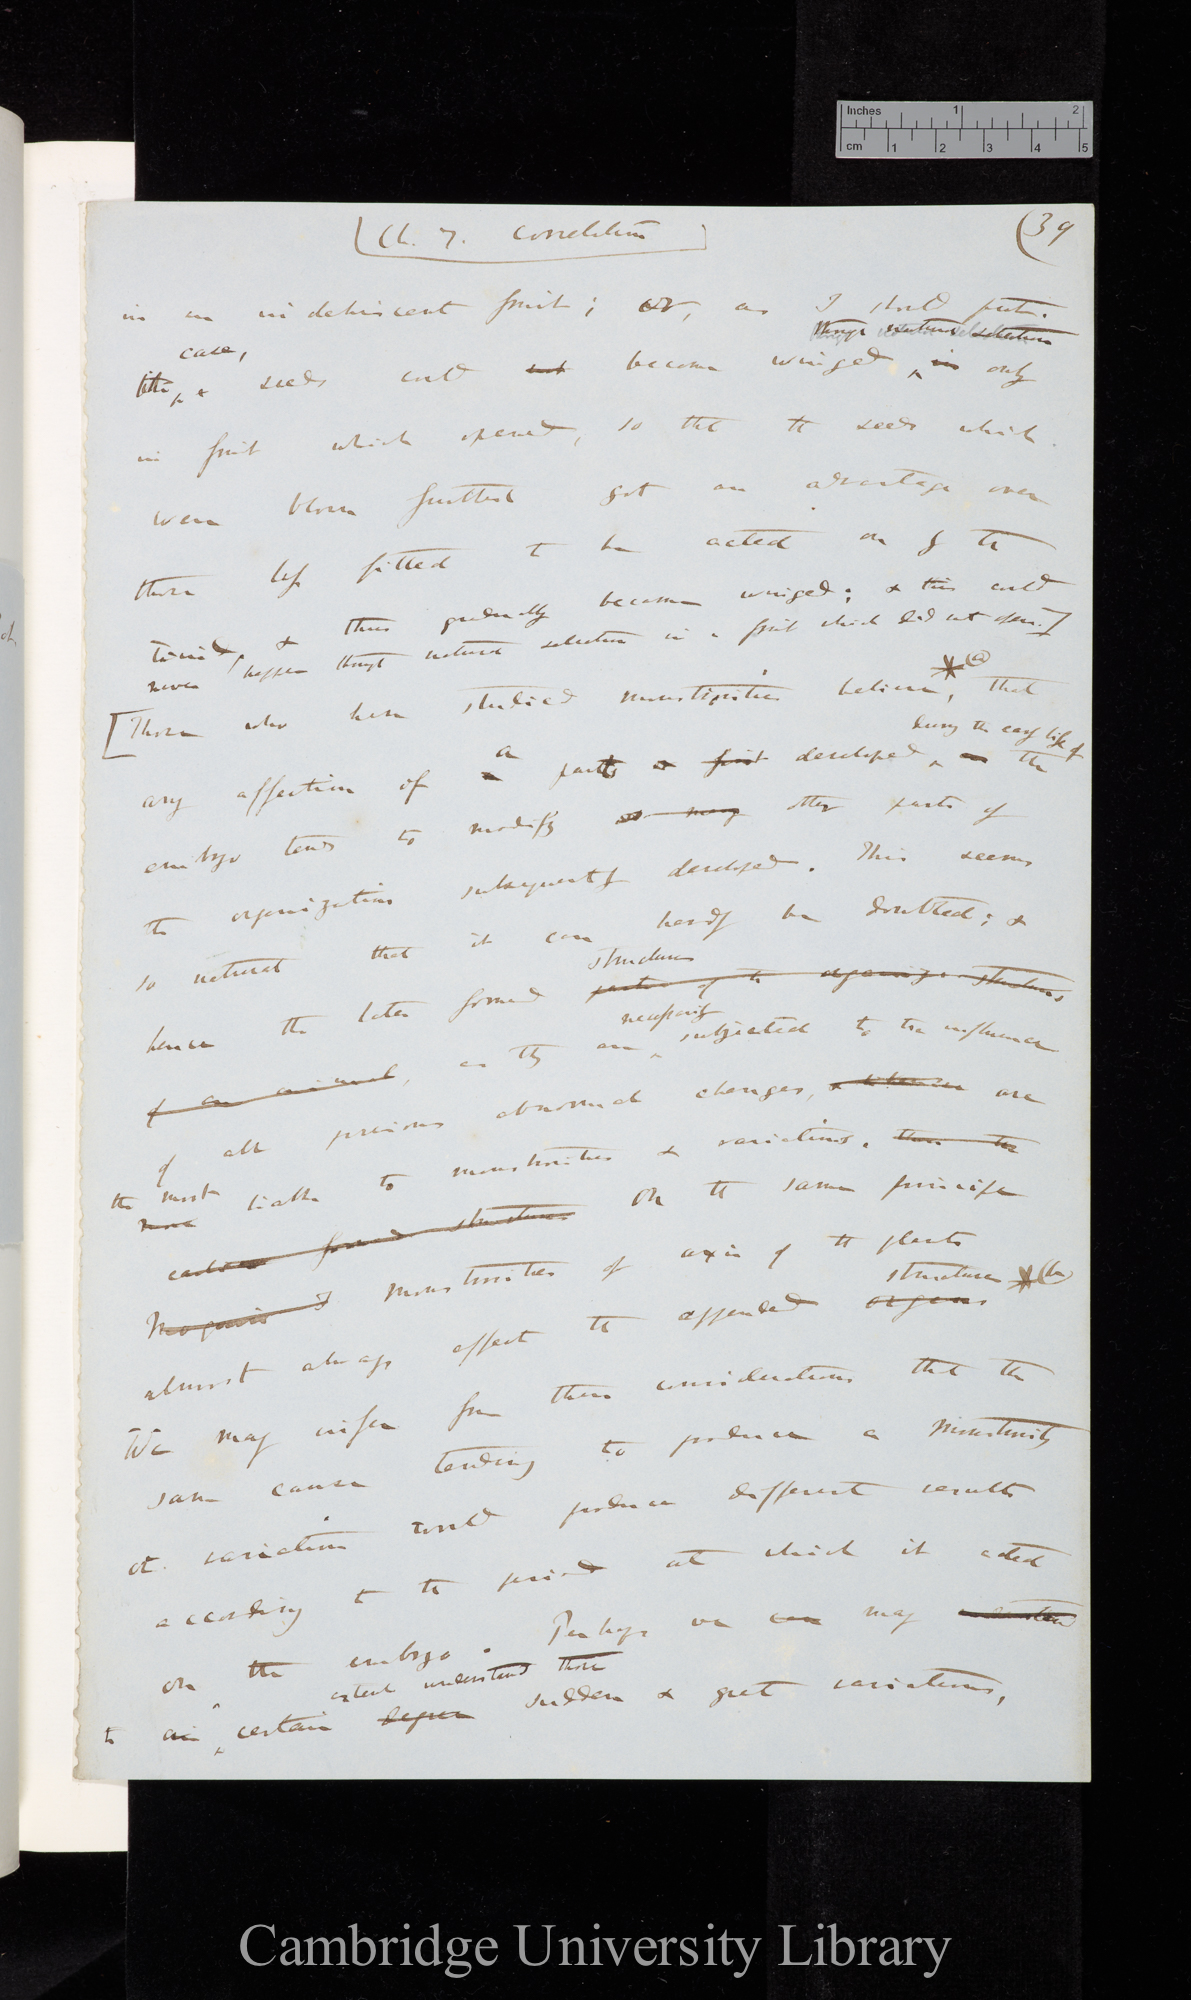 Inches 1 2
cm 1 2 3 4 5
Ch. 7. Correlation
(39
in an indehiscent fruit; or, as I should put
through natural selection
case,
the & seeds could not become winged, in only
in fruit which opened, so that the seeds which
were blown furthest got an advantage over
those less fitted to be acted on by the
wind, & thus gradually became winged; & this could
never happen through natural selection in a fruit which did not open.]
[Those who have studied monstrosities believe, * (a) that
during the early life of
a
any affection of a parts first developed, in the
embryo tends to modify so many other parts of
the organization subsequently developed. This seems
so natural that it can hardly be doubted; &
structures
hence the later formed parts of the structures
necessarily
of an animal, as they are subjected to the influence
of all previous abnormal changes, are
the most
more liable to monstrosities & variations. Thus the
earlier formed structures On the same principle
Moquin monstrosities of axis of the plants
structures * (b)
almost always affect the appended organs
We may infer from these considerations that the
same cause tending to produce a monstrosity
or variation would produce different results
according to the period at which it acted
on the embryo. Perhaps we can may understand
extent understand those
to a certain degree sudden & great variations,
Cambridge University Library